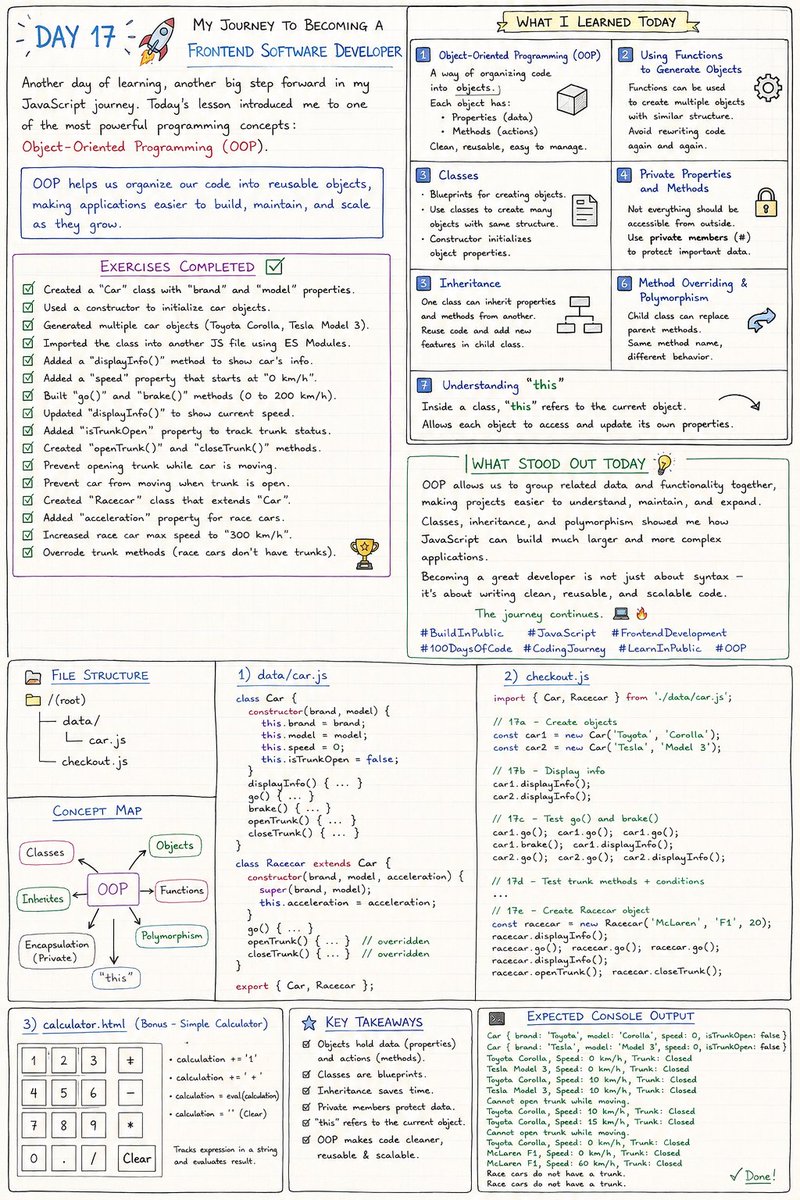 DAY 17
MY JOURNEY TO BECOMING A
FRONTEND SOFTWARE DEVELOPER
Another day of learning, another big step forward in my
JavaScript journey. Today's lesson introduced me to one
of the most powerful programming concepts:
Object-Oriented Programming (OOP).
OOP helps us organize our code into reusable objects,
making applications easier to build, maintain, and scale
as they grow.
EXERCISES COMPLETED
Created a "Car" class with "brand" and "model" properties.
Used a constructor to initialize car objects.
Generated multiple car objects (Toyota Corolla, Tesla Model 3).
Imported the class into another JS file using ES Modules.
Added a "displayInfo()" method to show car's info.
Added a "speed" property that starts at "0 km/h".
Built "go()" and "brake()" methods (0 to 200 km/h).
Updated "displayInfo()" to show current speed.
Added "isTrunkOpen" property to track trunk status.
Created "openTrunk()" and "closeTrunk()" methods.
Prevent opening trunk while car is moving.
Prevent car from moving when trunk is open.
Created "Racecar" class that extends "Car".
Added "acceleration" property for race cars.
Increased race car max speed to "300 km/h".
Overrode trunk methods (race cars don't have trunks).
WHAT I LEARNED TODAY
1 Object-Oriented Programming (OOP)
A way of organizing code
into objects.
Each object has:
• Properties (data)
• Methods (actions)
Clean, reusable, easy to manage.
2 Using Functions
to Generate Objects
Functions can be used
to create multiple objects
with similar structure.
Avoid rewriting code
again and again.
3 Classes
• Blueprints for creating objects.
• Use classes to create many
objects with same structure.
• Constructor initializes
object properties.
4 Private Properties
and Methods
Not everything should be
accessible from outside.
Use private members (#)
to protect important data.
3 Inheritance
One class can inherit properties
and methods from another.
Reuse code and add new
features in child class.
6 Method Overriding &
Polymorphism
Child class can replace
parent methods.
Same method name,
different behavior.
7 Understanding "this"
Inside a class, "this" refers to the current object.
Allows each object to access and update its own properties.
WHAT STOOD OUT TODAY
OOP allows us to group related data and functionality together,
making projects easier to understand, maintain, and expand.
Classes, inheritance, and polymorphism showed me how
JavaScript can build much larger and more complex
applications.
Becoming a great developer is not just about syntax –
it's about writing clean, reusable, and scalable code.
The journey continues.
#BuildInPublic #JavaScript #FrontendDevelopment
#100DaysOfCode #CodingJourney #LearnInPublic #OOP
FILE STRUCTURE
/(root)
data/
car.js
checkout.js
CONCEPT MAP
Classes
Objects
OOP
Inherites
Functions
Encapsulation
(Private)
Polymorphism
"this"
1) data/car.js
class Car {
constructor(brand, model) {
this.brand = brand;
this.model = model;
this.speed = 0;
this.isTrunkOpen = false;
}
displayInfo() { ... }
go() { ... }
brake() { ... }
openTrunk() { ... }
closeTrunk() { ... }
}
class Racecar extends Car {
constructor(brand, model, acceleration) {
super(brand, model);
this.acceleration = acceleration;
}
go() { ... }
openTrunk() { ... } // overridden
closeTrunk() { ... } // overridden
}
export { Car, Racecar };
2) checkout.js
import { Car, Racecar } from './data/car.js';
// 17a - Create objects
const car1 = new Car('Toyota', 'Corolla');
const car2 = new Car('Tesla', 'Model 3');
// 17b - Display info
car1.displayInfo();
car2.displayInfo();
// 17c - Test go() and brake()
car1.go(); car1.go(); car1.go();
car1.brake; car1.displayInfo();
car2.go(); car2.go(); car2.displayInfo();
// 17d - Test trunk methods + conditions
...
// 17e - Create Racecar object
const racecar = new Racecar('McLaren', 'F1', 20);
racecar.displayInfo();
racecar.go(); racecar.go(); racecar.go();
racecar.displayInfo();
racecar.openTrunk(); racecar.closeTrunk();
3) calculator.html (Bonus - Simple Calculator)
1 2 3 +
4 5 6 -
7 8 9 *
0 . / Clear
• calculation += '1'
• calculation += ' + '
• calculation = eval(calculation)
• calculation = '' (Clear)
Tracks expression in a string
and evaluates result.
KEY TAKEAWAYS
Objects hold data (properties)
and actions (methods).
Classes are blueprints.
Inheritance saves time.
Private members protect data.
"this" refers to the current object.
OOP makes code cleaner,
reusable & scalable.
EXPECTED CONSOLE OUTPUT
Car { brand: 'Toyota', model: 'Corolla', speed: 0, isTrunkOpen: false }
Car { brand: 'Tesla', model: 'Model 3', speed: 0, isTrunkOpen: false }
Toyota Corolla, Speed: 0 km/h, Trunk: Closed
Tesla Model 3, Speed: 0 km/h, Trunk: Closed
Toyota Corolla, Speed: 10 km/h, Trunk: Closed
Tesla Model 3, Speed: 10 km/h, Trunk: Closed
Cannot open trunk while moving.
Toyota Corolla, Speed: 10 km/h, Trunk: Closed
Toyota Corolla, Speed: 15 km/h, Trunk: Closed
Cannot open trunk while moving.
Toyota Corolla, Speed: 0 km/h, Trunk: Closed
McLaren F1, Speed: 0 km/h, Trunk: Closed
McLaren F1, Speed: 60 km/h, Trunk: Closed
Race cars do not have a trunk.
Race cars do not have a trunk.
✓ Done!